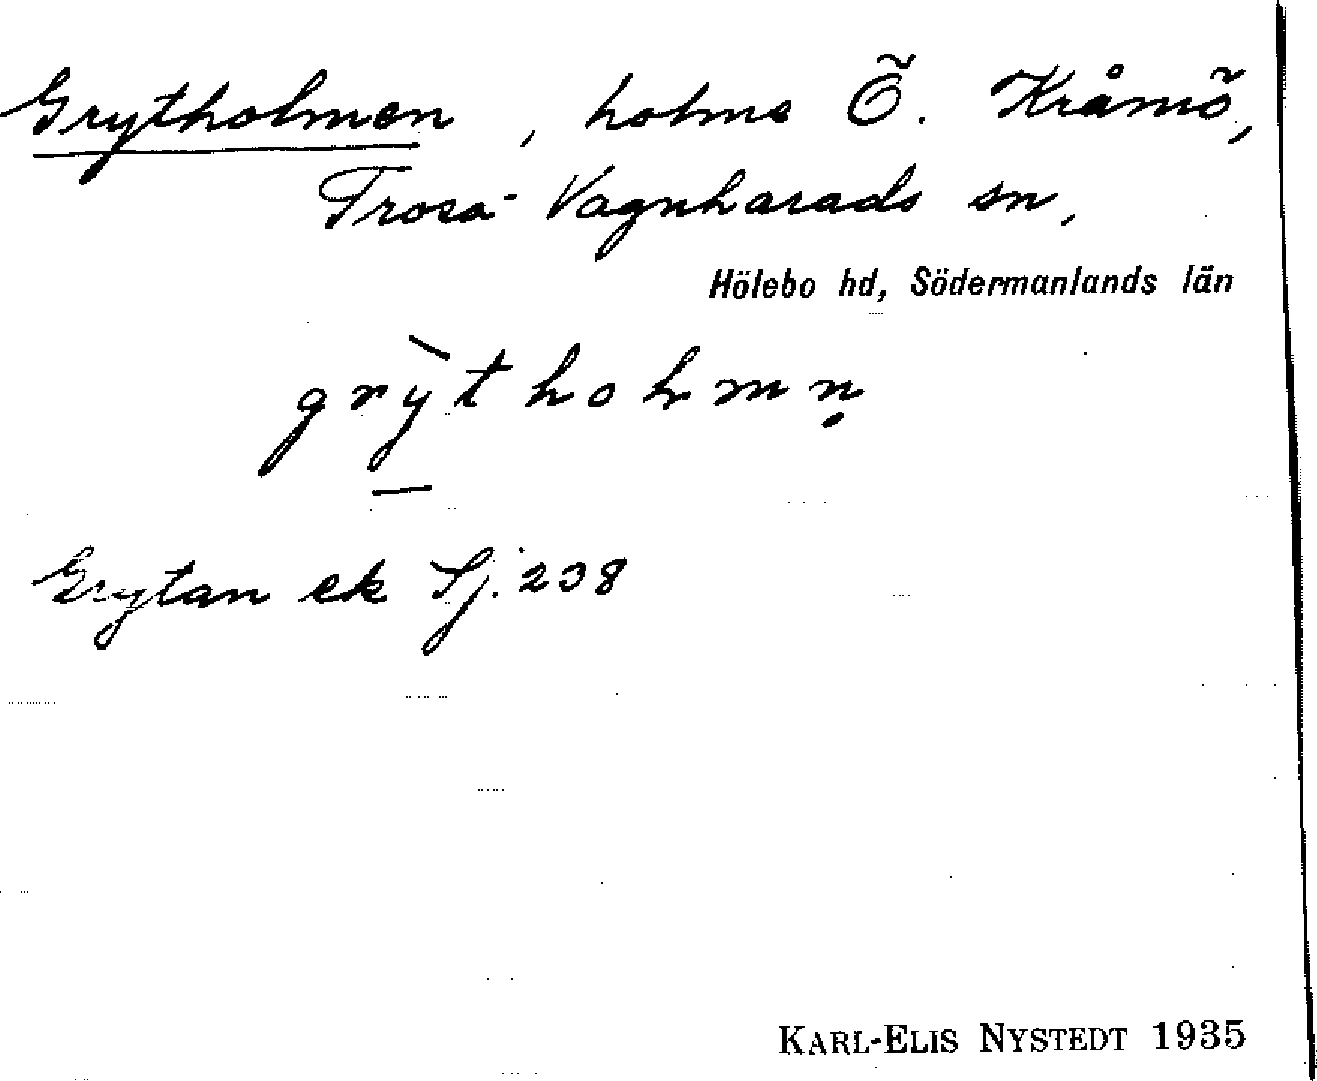 Grytholmen, holme Ö. Kråmö,
Trosa-Vagnharads sn,
Hölebo hd, Södermanlands län
grỳtholmn̥
Grytan ek Sj. 238
KARL-ELIS NYSTEDT 1935